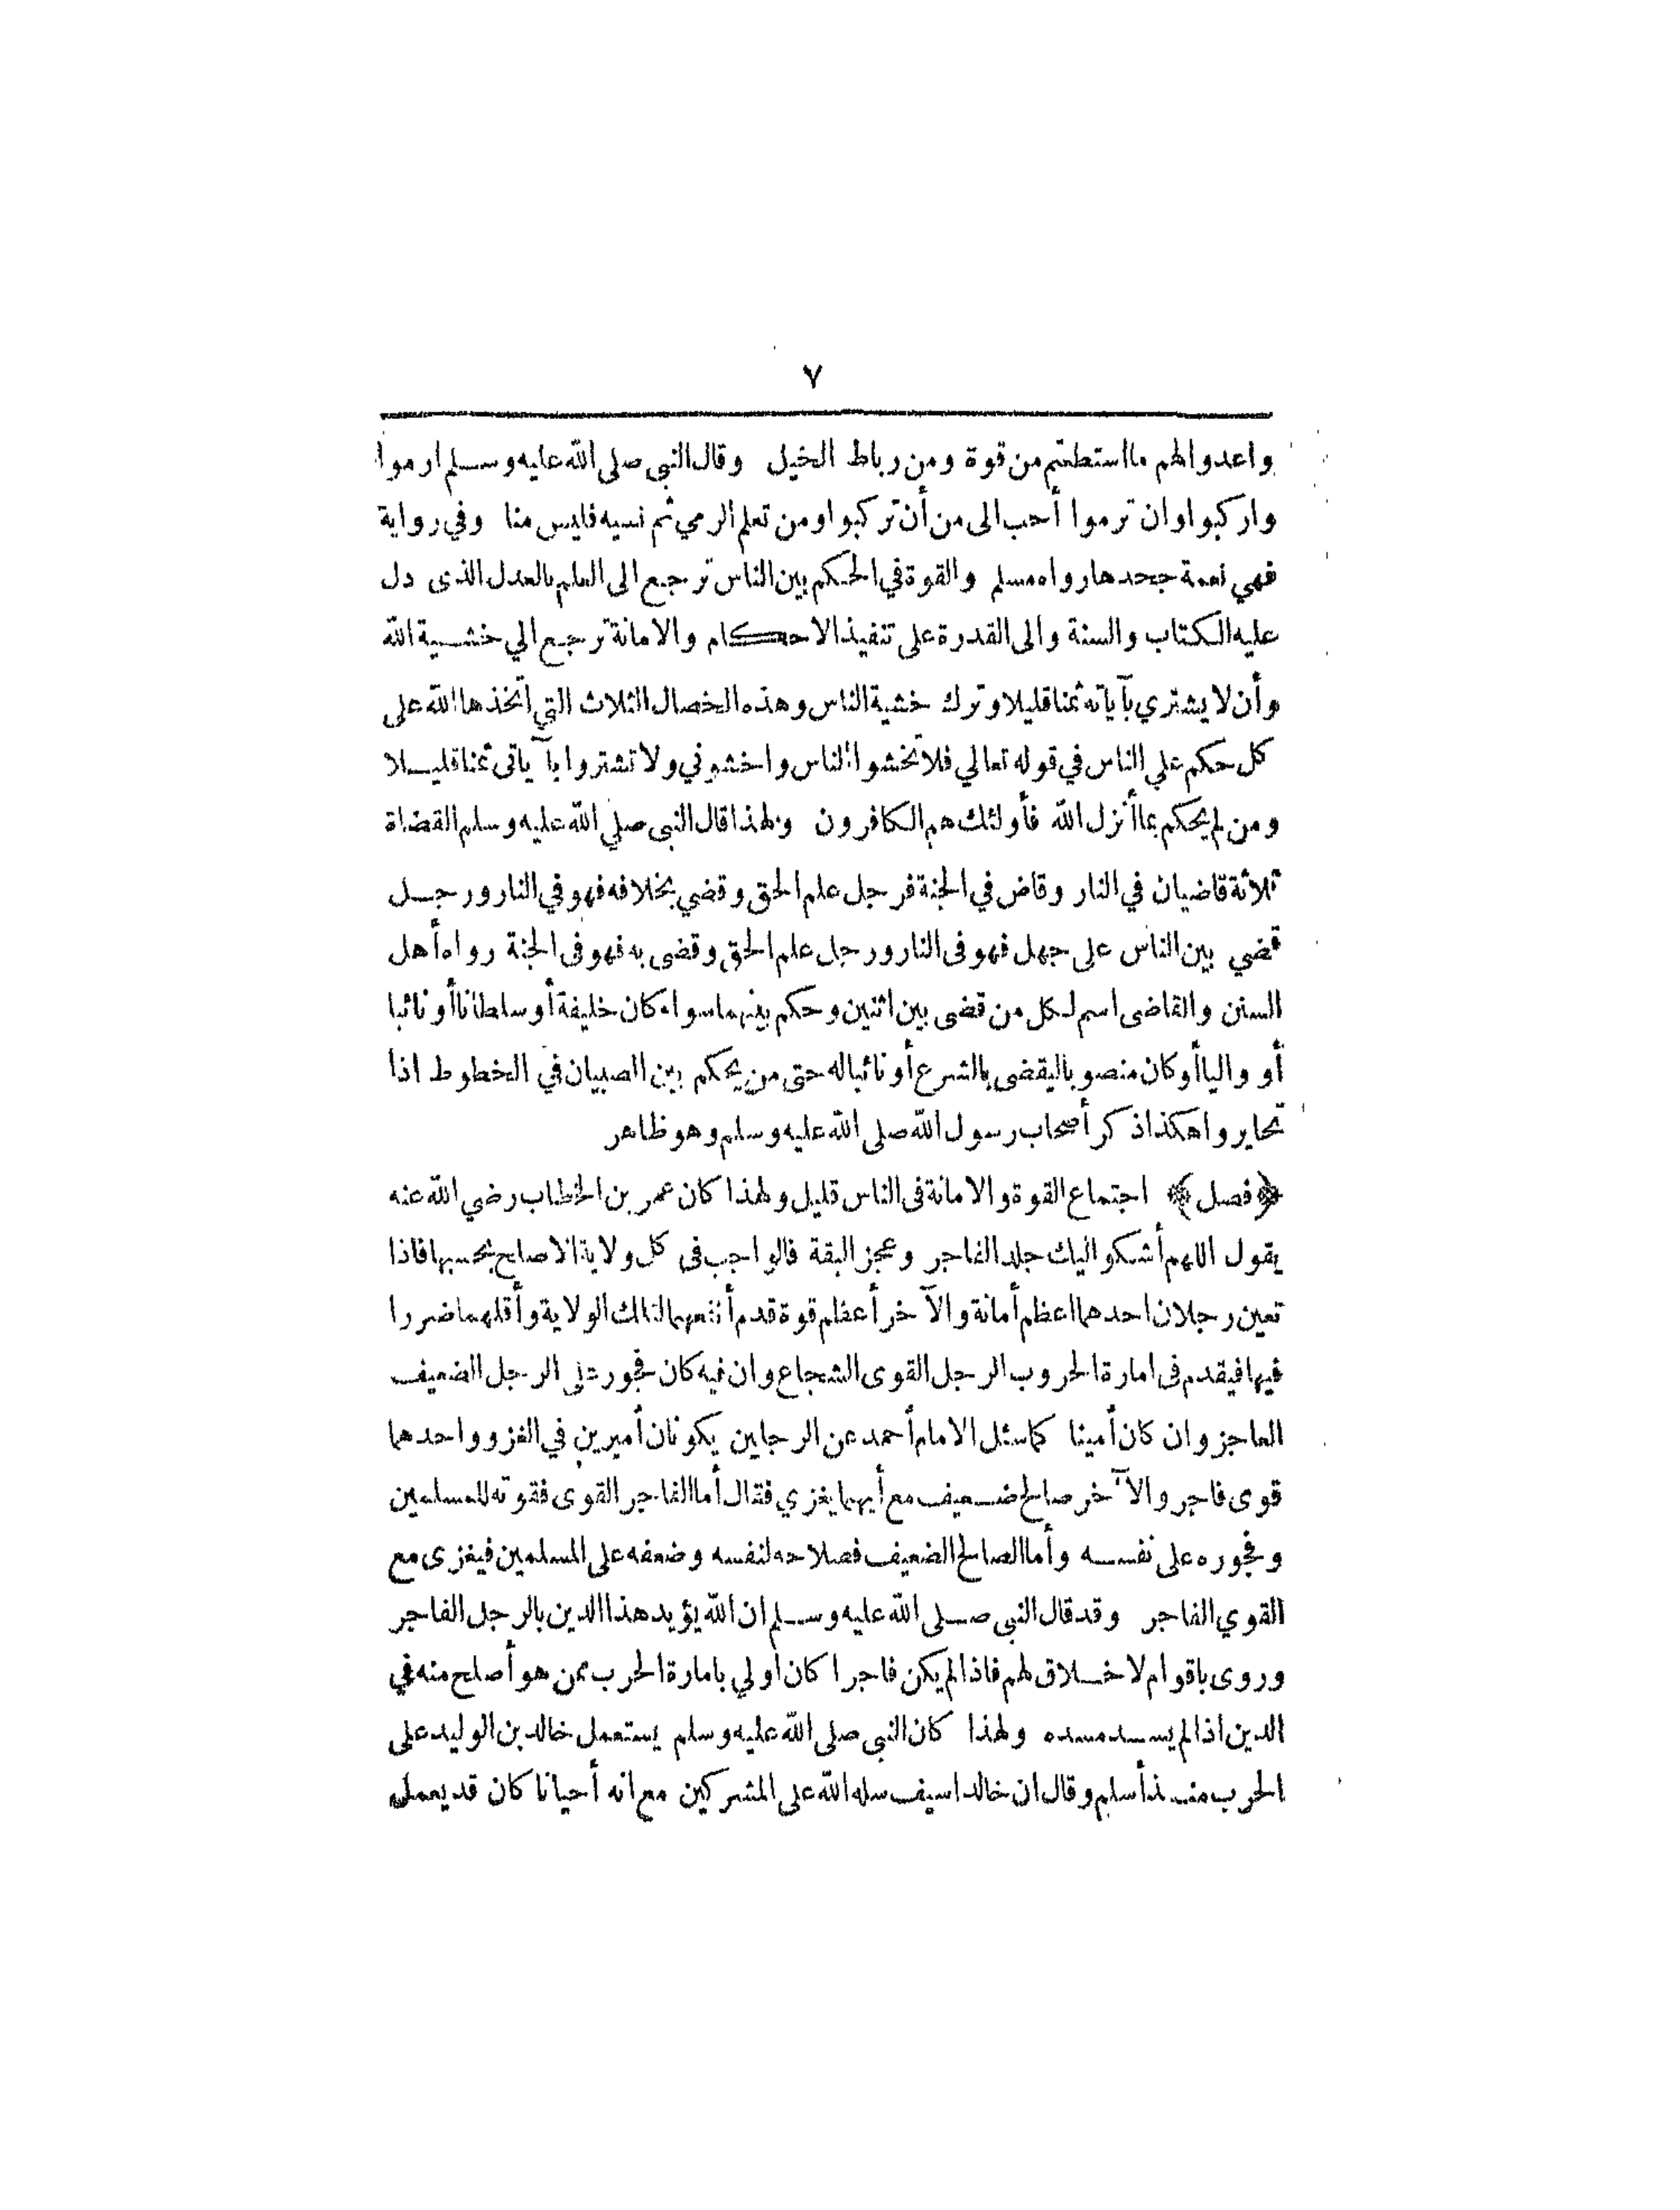 ٧
واعدوا لهم ما استطعتم من قوة ومن رباط الخيل وقال النبي صلى الله عليه وسلم ارموا
واركبوا وان ترموا أحب الى من أن تركبوا ومن تعلم الرمي ثم نسيه فليس منا وفي رواية
فهي نعمة جحدها رواه مسلم والقوة في الحكم بين الناس ترجع الى العلم بالعدل الذى دل
عليه الكتاب والسنة والى القدرة على تنفيذ الاحكام والامانة ترجع الي خشية الله
وأن لا يشتري بآياته ثمنا قليلا وترك خشية الناس وهذه الخصال الثلاث التي اتخذها الله على
كل حكم علي الناس في قوله تعالي فلا تخشوا الناس واخشوني ولا تشتروا بآياتى ثمنا قليلا
ومن لم يحكم بما أنزل الله فأولئك هم الكافرون ولهذا قال النبى صلي الله عليه وسلم القضاة
ثلاثة قاضيان في النار وقاض في الجنة فرجل علم الحق وقضي بخلافه فهو في النار ورجل
قضي بين الناس على جهل فهو فى النار ورجل علم الحق وقضى به فهو فى الجنة رواه أهل
السنن والقاضى اسم لكل من قضى بين اثنين وحكم بينهما سواء كان خليفة أو سلطانا أو نائبا
أو واليا أو كان منصوبا ليقضى بالشرع أو نائبا له حتى من يحكم بين الصبيان في الخطوط اذا
تحايروا هكذا ذكر أصحاب رسول الله صلى الله عليه وسلم وهو ظاهر
﴿فصل﴾ اجتماع القوة والامانة فى الناس قليل ولهذا كان عمر بن الخطاب رضي الله عنه
يقول اللهم أشكو اليك جلد الفاجر وعجز البقة فالواجب فى كل ولاية الاصلح بحسبها فاذا
تعين رجلان احدهما اعظم أمانة والآخر أعظم قوة قدم أنفعهما لتلك الولاية وأقلهما ضررا
فيها فيقدم فى امارة الحروب الرجل القوى الشجاع وان فيه كان فجور على الرجل الضعيف
العاجز وان كان أمينا كما سئل الامام أحمد عن الرجلين يكونان أميرين في الغزو واحدهما
قوى فاجر والآخر صالح ضعيف مع أيهما يغزي فقال أما الفاجر القوى فقوته للمسلمين
وفجوره على نفسه وأما الصالح الضعيف فصلاحه لنفسه وضعفه على المسلمين فيغزى مع
القوي الفاجر وقد قال النبى صلى الله عليه وسلم ان الله يؤيد هذا الدين بالرجل الفاجر
وروى باقوام لا خلاق لهم فاذا لم يكن فاجرا كان أولي بامارة الحرب ممن هو أصلح منه في
الدين اذا لم يسد مسده ولهذا كان النبى صلى الله عليه وسلم يستعمل خالد بن الوليد على
الحرب منذ أسلم وقال ان خالدا سيف سله الله على المشركين مع انه أحيانا كان قد يعمل